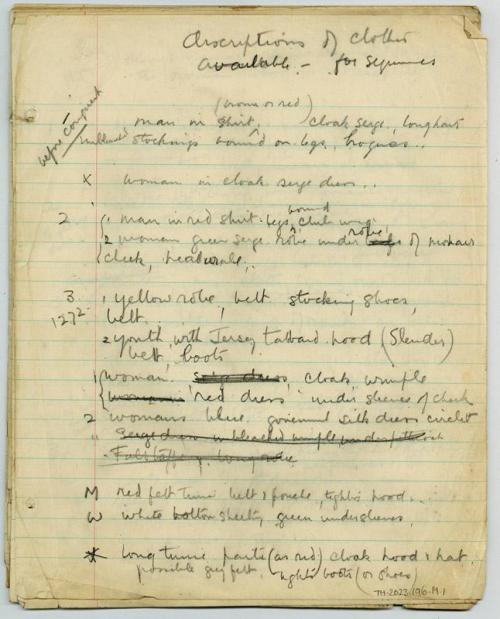 descriptions of clothes
available - for sequences
(brown or red)
before conquest
1 man in shirt, cloak serge, longhair
stockings wound on legs, brogues..
X woman in cloak serge dress..
wound
2 1 man in red shirt. legs,
robe,
2 woman green serge robe under of mohair
check,
3. 1 yellow robe, belt stocking shoes,
1272 belt.
2 youth with Jersey tabbard hood (Slender)
belt, boots
1 woman. serge dress, cloak, wimple
woman red dress under sleeves of check
2 womans blue silk dress circlet
" serge dress in bleached wimple
M red felt tunic belt & pouche, tights hood..
W white bolton sheeting green undersleeves,
* Long tunic pants (as red) cloak hood & hat
possible grey felt. tights boots (or shoes)
TH-2023.196.M.1